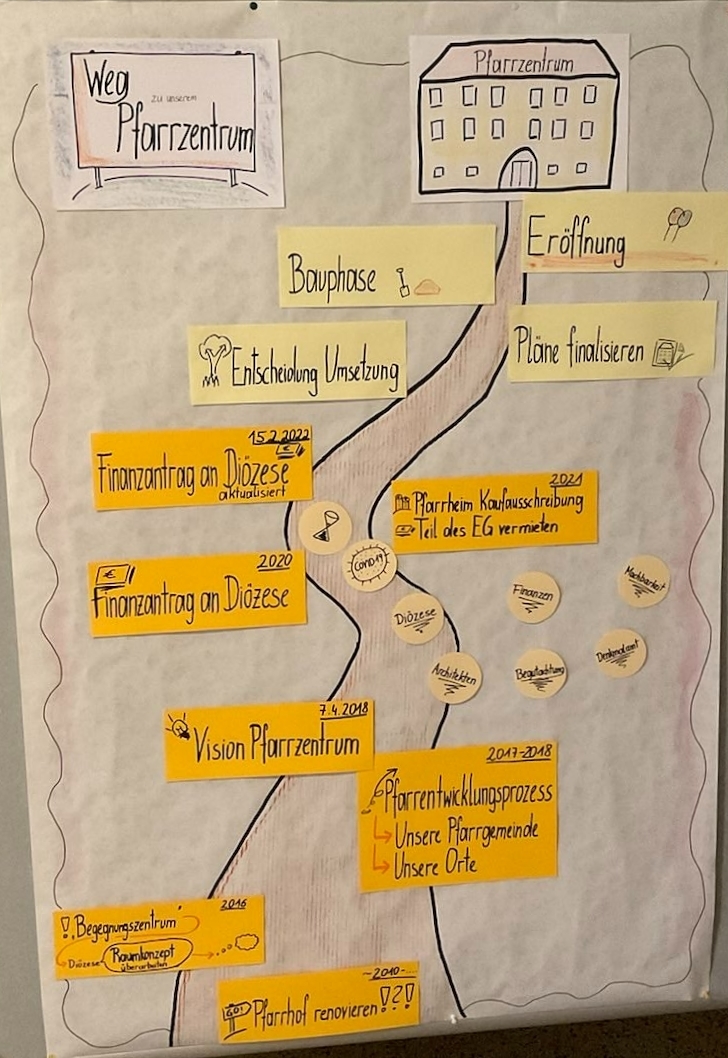 Weg
zu unserem
Pfarrzentrum
Pfarrzentrum
Eröffnung
Bauphase
Pläne finalisieren
Entscheidung Umsetzung
15.2.2022
€
Finanzantrag an Diözese
aktualisiert
2021
Pfarrheim Kaufausschreibung
Teil des EG vermieten
COVID19
2020
€
Finanzantrag an Diözese
Diözese
Finanzen
Machbarkeit
Architekten
Begutachtung
Denkmalamt
7.4.2018
Vision Pfarrzentrum
2017-2018
Pfarrentwicklungsprozess
Unsere Pfarrgemeinde
Unsere Orte
2016
! „Begegnungszentrum"
Diözese: Raumkonzept
überarbeiten
~2010-....
GO!
Pfarrhof renovieren !?!